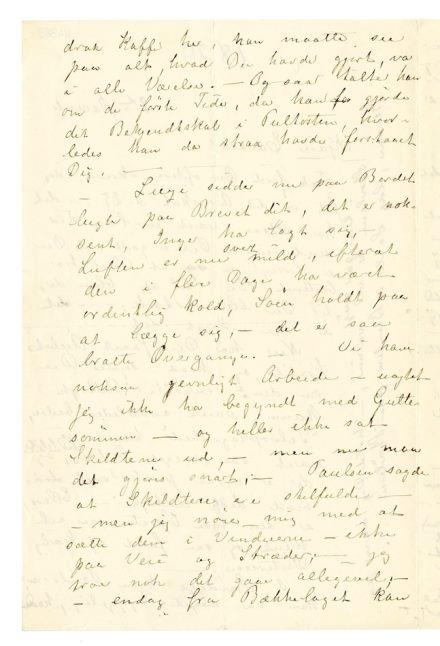 drak Kaffe her, han maatte see
paa alt, hvad Du havde gjort, va
i alle Værelser. — Og saa talte han
om de første Tider, da han gjorde
det Bekjendtskab i Pultosten, hvor-
ledes han da straa havde forstaaet
Dig. —
— sidder nu paa Bordet
paa Brevet dit, det er nok-
sent, Inga har lagt sig, —
Luften er nu svert mild, efterat
den i fler Dage har været
ordentlig kold, Søen holdt paa
at lægge sig, — det er saa
bratte Overgange. — Vi have
noksaa jevnligt Arbeide — uagtet
jeg ikke har begyndt med Gutte
sømmen — og heller ikke sat
Skildterne ud, — men nu maa
det gjøres snart; — Paulsen sagde
at Skildterne ere skelfulde —
— men jeg nøier mig med at
sætte dem i Vinduerne — ikke
paa Veie og Stræder, — jeg
tror nok det gaar allegevel, —
— endog fra Bækkelaget kan